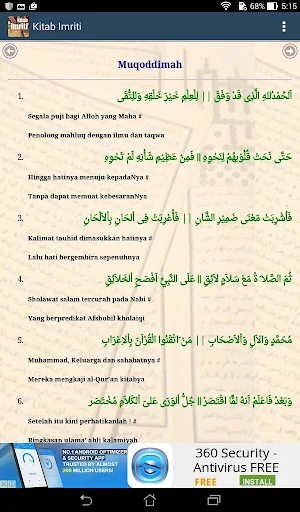 85% 5:15
Kitab Imriti
Muqoddimah
1.
اَلْحَمْدُ لِلهِ الَّذِى قَدْ وَفَّقَا || لِلْعِلْمِ خَيْرَ خَلْقِهِ وَلِلتُّقَى
Segala puji bagi Alloh yang Maha #
Penolong mahluq dengan ilmu dan taqwa
2.
حَتَّى نَحَتْ قُلُوْبُهُمْ لِنَحْوِهِ || فَمِنْ عَظِيْمِ شَأْنِهِ لَمْ تَحْوِهِ
Hingga hatinya menuju kepadaNya #
Tanpa dapat memuat kebesaranNya
3.
فَأُشْرِبَتْ مَعْنَى ضَمِيْرِ الشَّانِ || فَأُعْرِبَتْ فِى اْلحَانِ بِاْلاَلْحَانِ
Kalimat tauhid dimasukkan hatinya #
Lalu hati bergembira sepenuhnya
4.
ثُمَّ الصَّلاَةُ مَعْ سَلاَمٍ لاَئِقِ || عَلَى النَّبِيِّ أَفْصَحِ الْخَلاَئِقِ
Sholawat salam tercurah pada Nabi #
Yang berpredikat Afshohil kholaiqi
5.
مُحَمَّدٍ وَاْلآلِ وَاْلأَصْحَابِ || مَنْ اَتْقَنُوا الْقُرْآنَ بِاْلإِعْرَابِ
Muhammad, Keluarga dan sahabatnya #
Mereka mengkaji al-Qur'an kitabya
6.
وَبَعْدُ فَاعْلَمْ أَنَهُ لَمَّا اقْتَصَرْ || جُلُّ الْوَرَى عَلَى الْكَلاَمِ مُخْتَصَرْ
Setelah itu kini perhatikanlah ! #
Ringkasan ulama' ahli kalamiyah
NO.1 ANDROID OPTIMIZER
& SECURITY APP
TRUSTED BY ALMOST
200 MILLION USERS!
360 Security -
Antivirus FREE
FREE INSTALL